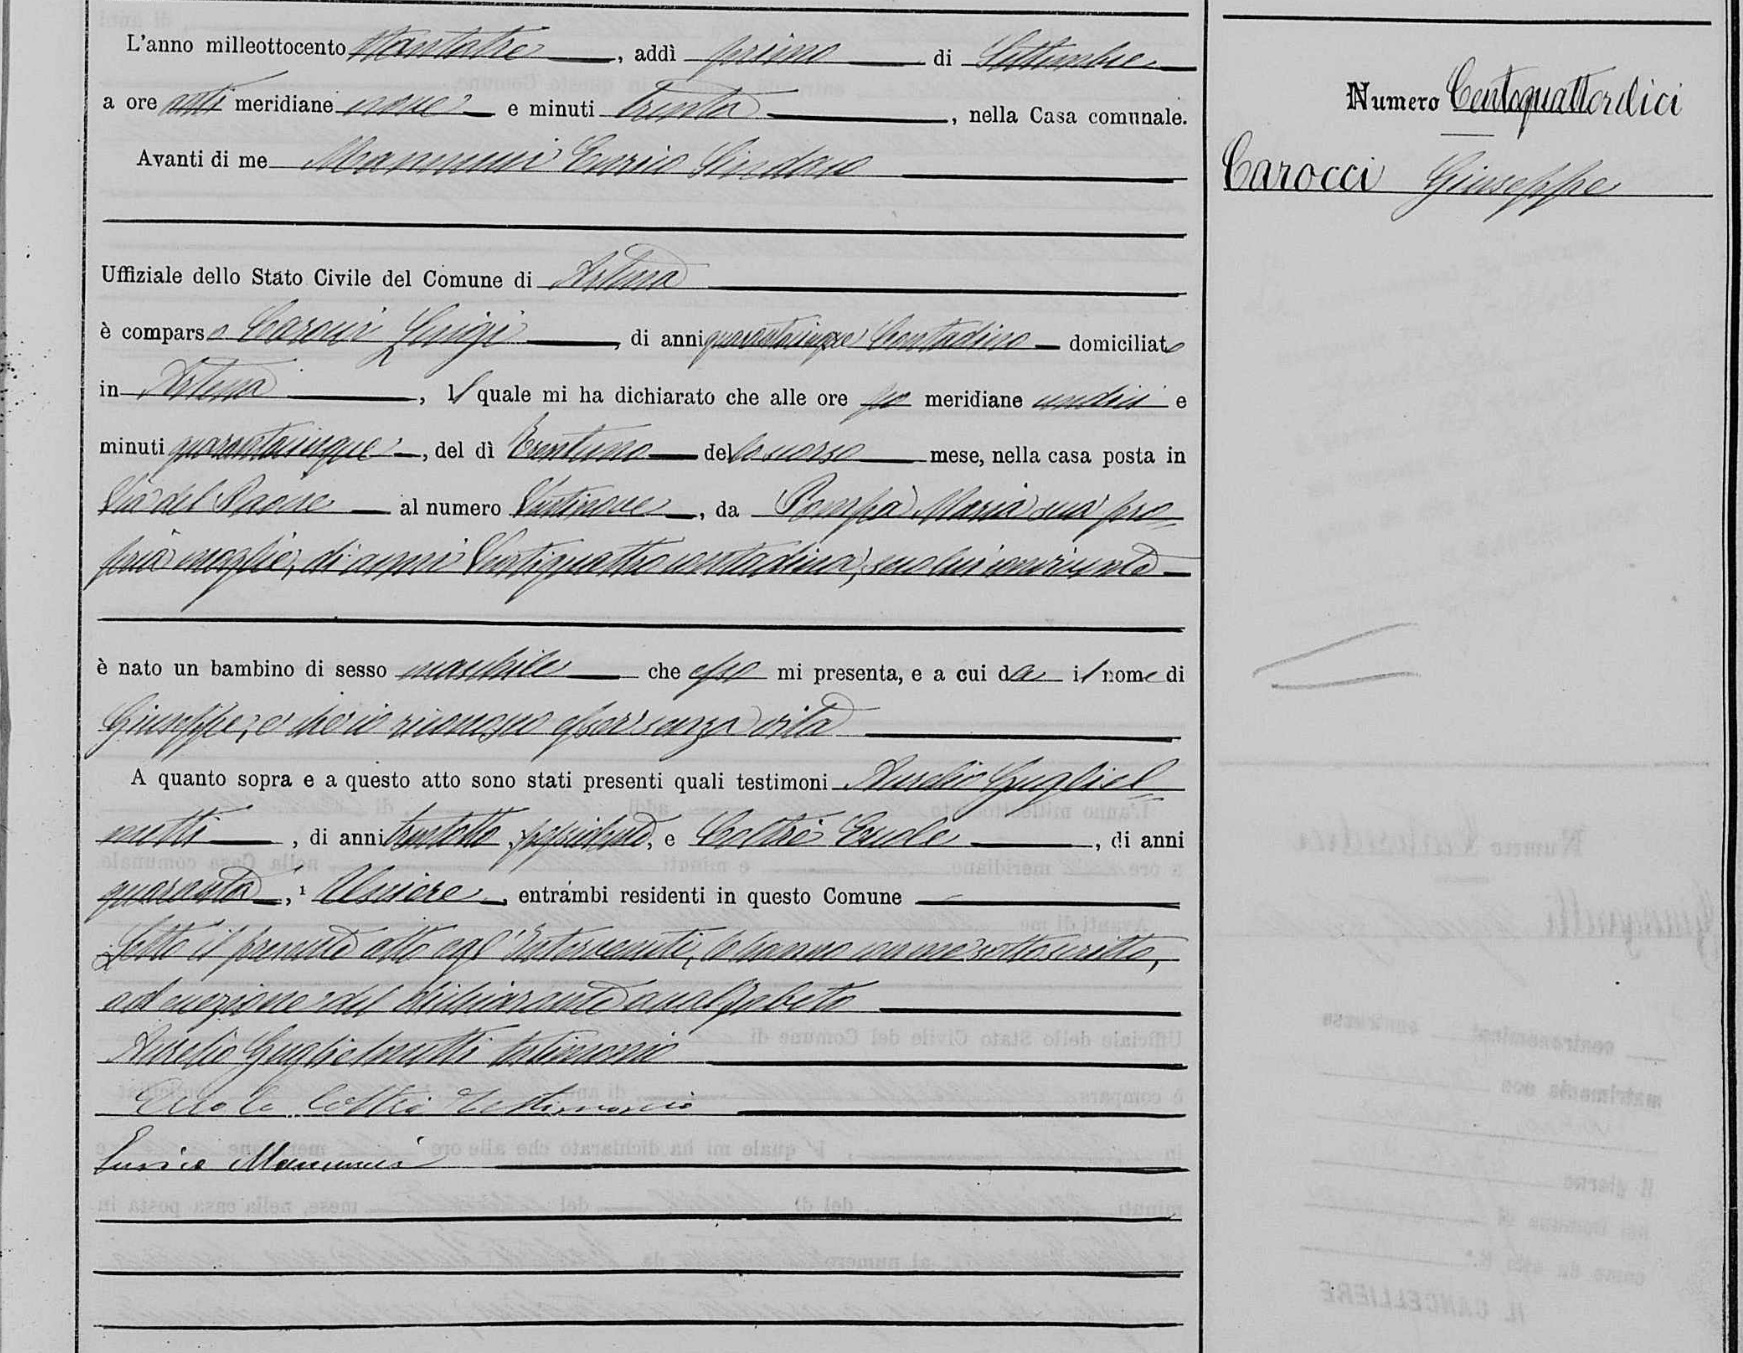 L'anno milleottocento ottantatre, addì primo di Settembre
a ore anti meridiane nove e minuti trenta, nella Casa comunale.
Avanti di me Mannucci Enrico Sindaco
Uffiziale dello Stato Civile del Comune di Artena
è comparso Carocci Luigi, di anni quarantacinque Contadino domiciliato
in Artena, il quale mi ha dichiarato che alle ore po meridiane undici e
minuti quarantacinque, del dì trentuno dello scorso mese, nella casa posta in
Via del Paone al numero Ventinove, da Pompa Maria sua pro=
pria moglie, di anni Ventiquattro contadina, seco lui convivente
è nato un bambino di sesso maschile che esso mi presenta, e a cui da il nome di
Giuseppe, e che io riconosco esser senza vita
A quanto sopra e a questo atto sono stati presenti quali testimoni Aurelio Gugliel=
motti, di anni trentotto, possidente, e Coltrè Ercole, di anni
quaranta, Usciere, entrambi residenti in questo Comune
Letto il presente atto agl'Intervenuti, lo hanno con me sottoscritto,
ad eccezione del dichiarante analfabeto
Aurelio Guglielmotti testimonio
Ercole testimonio
Enrico Mannucci
Numero Centoquattordici
Carocci Giuseppe